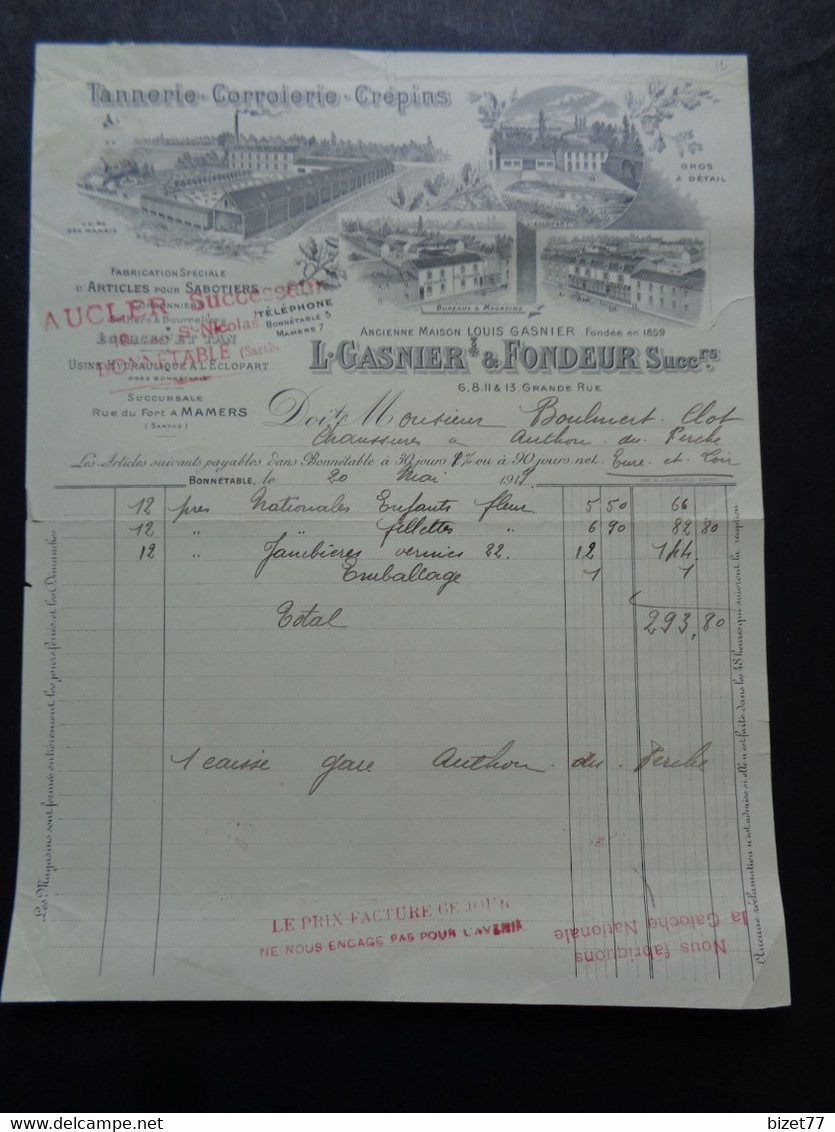 Tannerie-Corroierie-Crépins
GROS
& DÉTAIL
USINE
DES MARAIS
L'ÉCLOPART
BUREAUX & MAGASINS
FABRICATION SPÉCIALE
D'ARTICLES POUR SABOTIERS
AUCLER Successeur
St-Nicolas
BONNÉTABLE (Sarthe)
USINE HYDRAULIQUE A L'ÉCLOPART
PRÈS BONNÉTABLE
SUCCURSALE
RUE DU FORT A MAMERS
(SARTHE)
TÉLÉPHONE
BONNÉTABLE 5
MAMERS 7
ANCIENNE MAISON LOUIS GASNIER FONDÉE EN 1859
L. GASNIER & FONDEUR Succrs.
6, 8, 11 & 13, GRANDE RUE
Doit Monsieur Boulmert-Clot
Chaussures a Authon-du-Perche
Les Articles suivants payables dans Bonnétable à 30 jours % ou à 90 jours net. Eure-et-Loir
BONNÉTABLE, le 20 Mai 191
12 pres Nationales Enfants fleur 5 50 66
12 " " fillettes " 6 90 82 80
12 " Jambières vernies 22. 12 144
Emballage 1 1
Total 293,80
1 caisse gare Authon-du-Perche
LE PRIX FACTURE CE JOUR
NE NOUS ENGAGE PAS POUR L'AVENIR
Nous fabriquons
la Galoche Nationale
Les Magasins sont fermés entièrement les jours fériés et les Dimanches
Aucune réclamation n'est admise si elle n'est faite dans les 48 heures qui suivront la réception
delcampe.net
bizet77